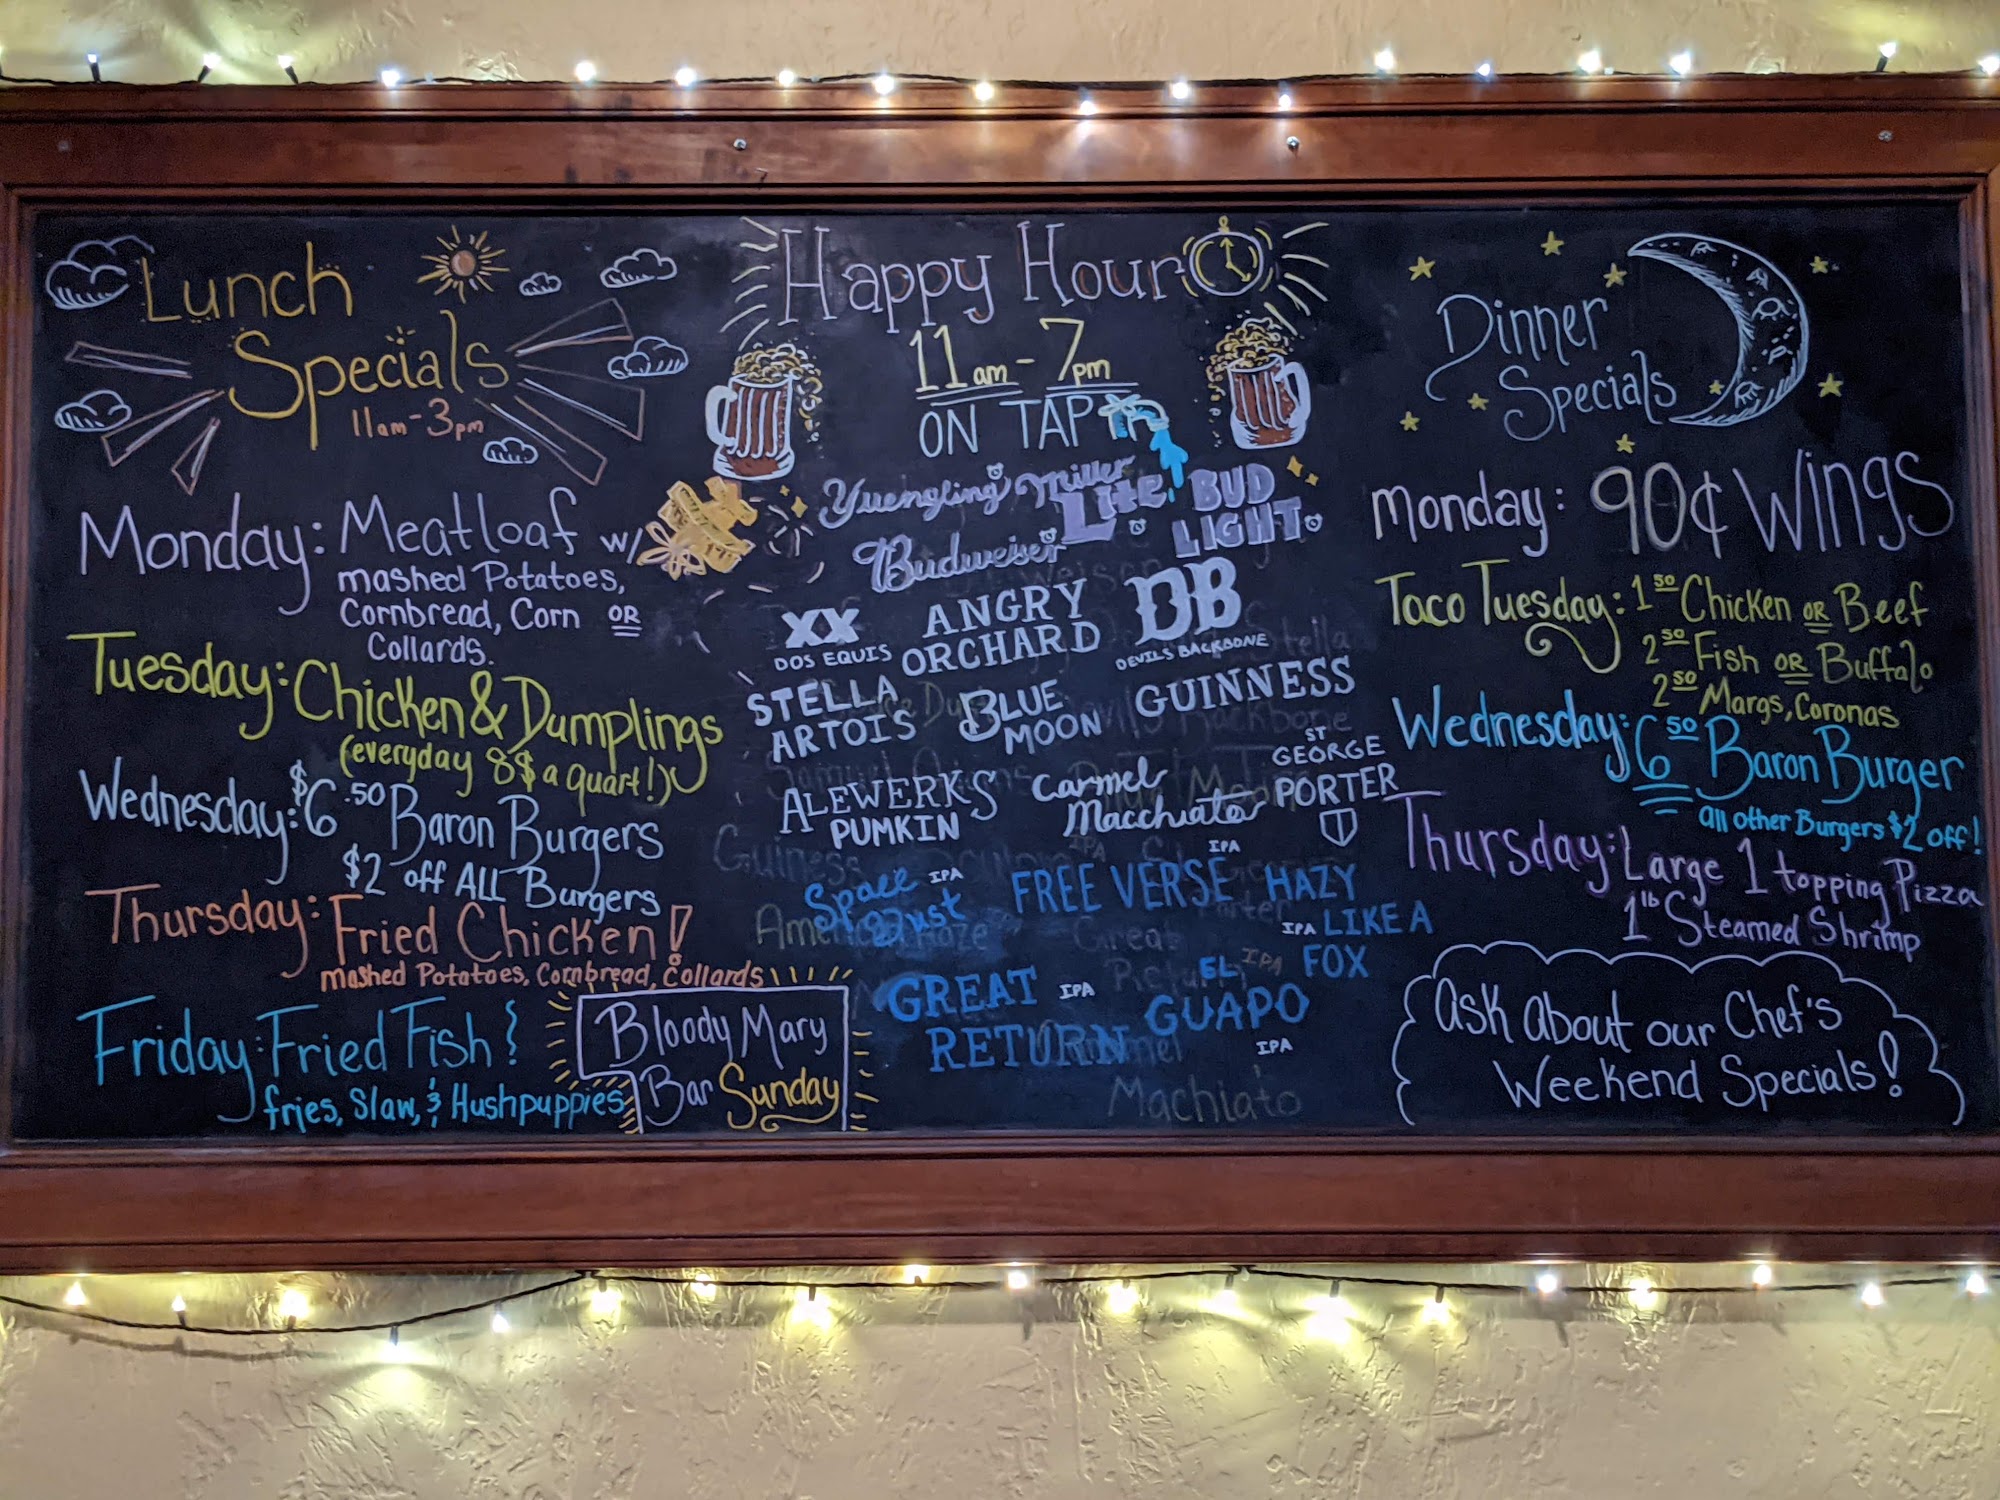 Lunch
Specials
11am-3pm
Monday: Meatloaf w/
mashed Potatoes,
Cornbread, Corn OR
Collards.
Tuesday: Chicken & Dumplings
(everyday 8$ a quart!)
Wednesday: $6.50 Baron Burgers
$2 off ALL Burgers
Thursday: Fried Chicken!
mashed Potatoes, Cornbread, Collards
Friday: Fried Fish!
fries, Slaw, & Hushpuppies
Bloody Mary
Bar Sunday
Happy Hour
11am-7pm
ON TAP
Yuengling Miller Lite BUD LIGHT
Budweiser
XX DOS EQUIS
ANGRY ORCHARD
DB DEVILS BACKBONE
STELLA ARTOIS
BLUE MOON
GUINNESS
ALEWERKS PUMKIN
Carmel Macchiato
ST GEORGE PORTER
Space Dust IPA
FREE VERSE IPA
HAZY LIKE A FOX IPA
GREAT RETURN IPA
EL GUAPO IPA
Machiato
Dinner
Specials
Monday: 90¢ Wings
Taco Tuesday: 1 50 Chicken OR Beef
2 50 Fish OR Buffalo
2 50 Margs, Coronas
Wednesday: 6 50 Baron Burger
all other Burgers $2 off!
Thursday: Large 1 topping Pizza
1 lb Steamed Shrimp
Ask about our Chef's
Weekend Specials!